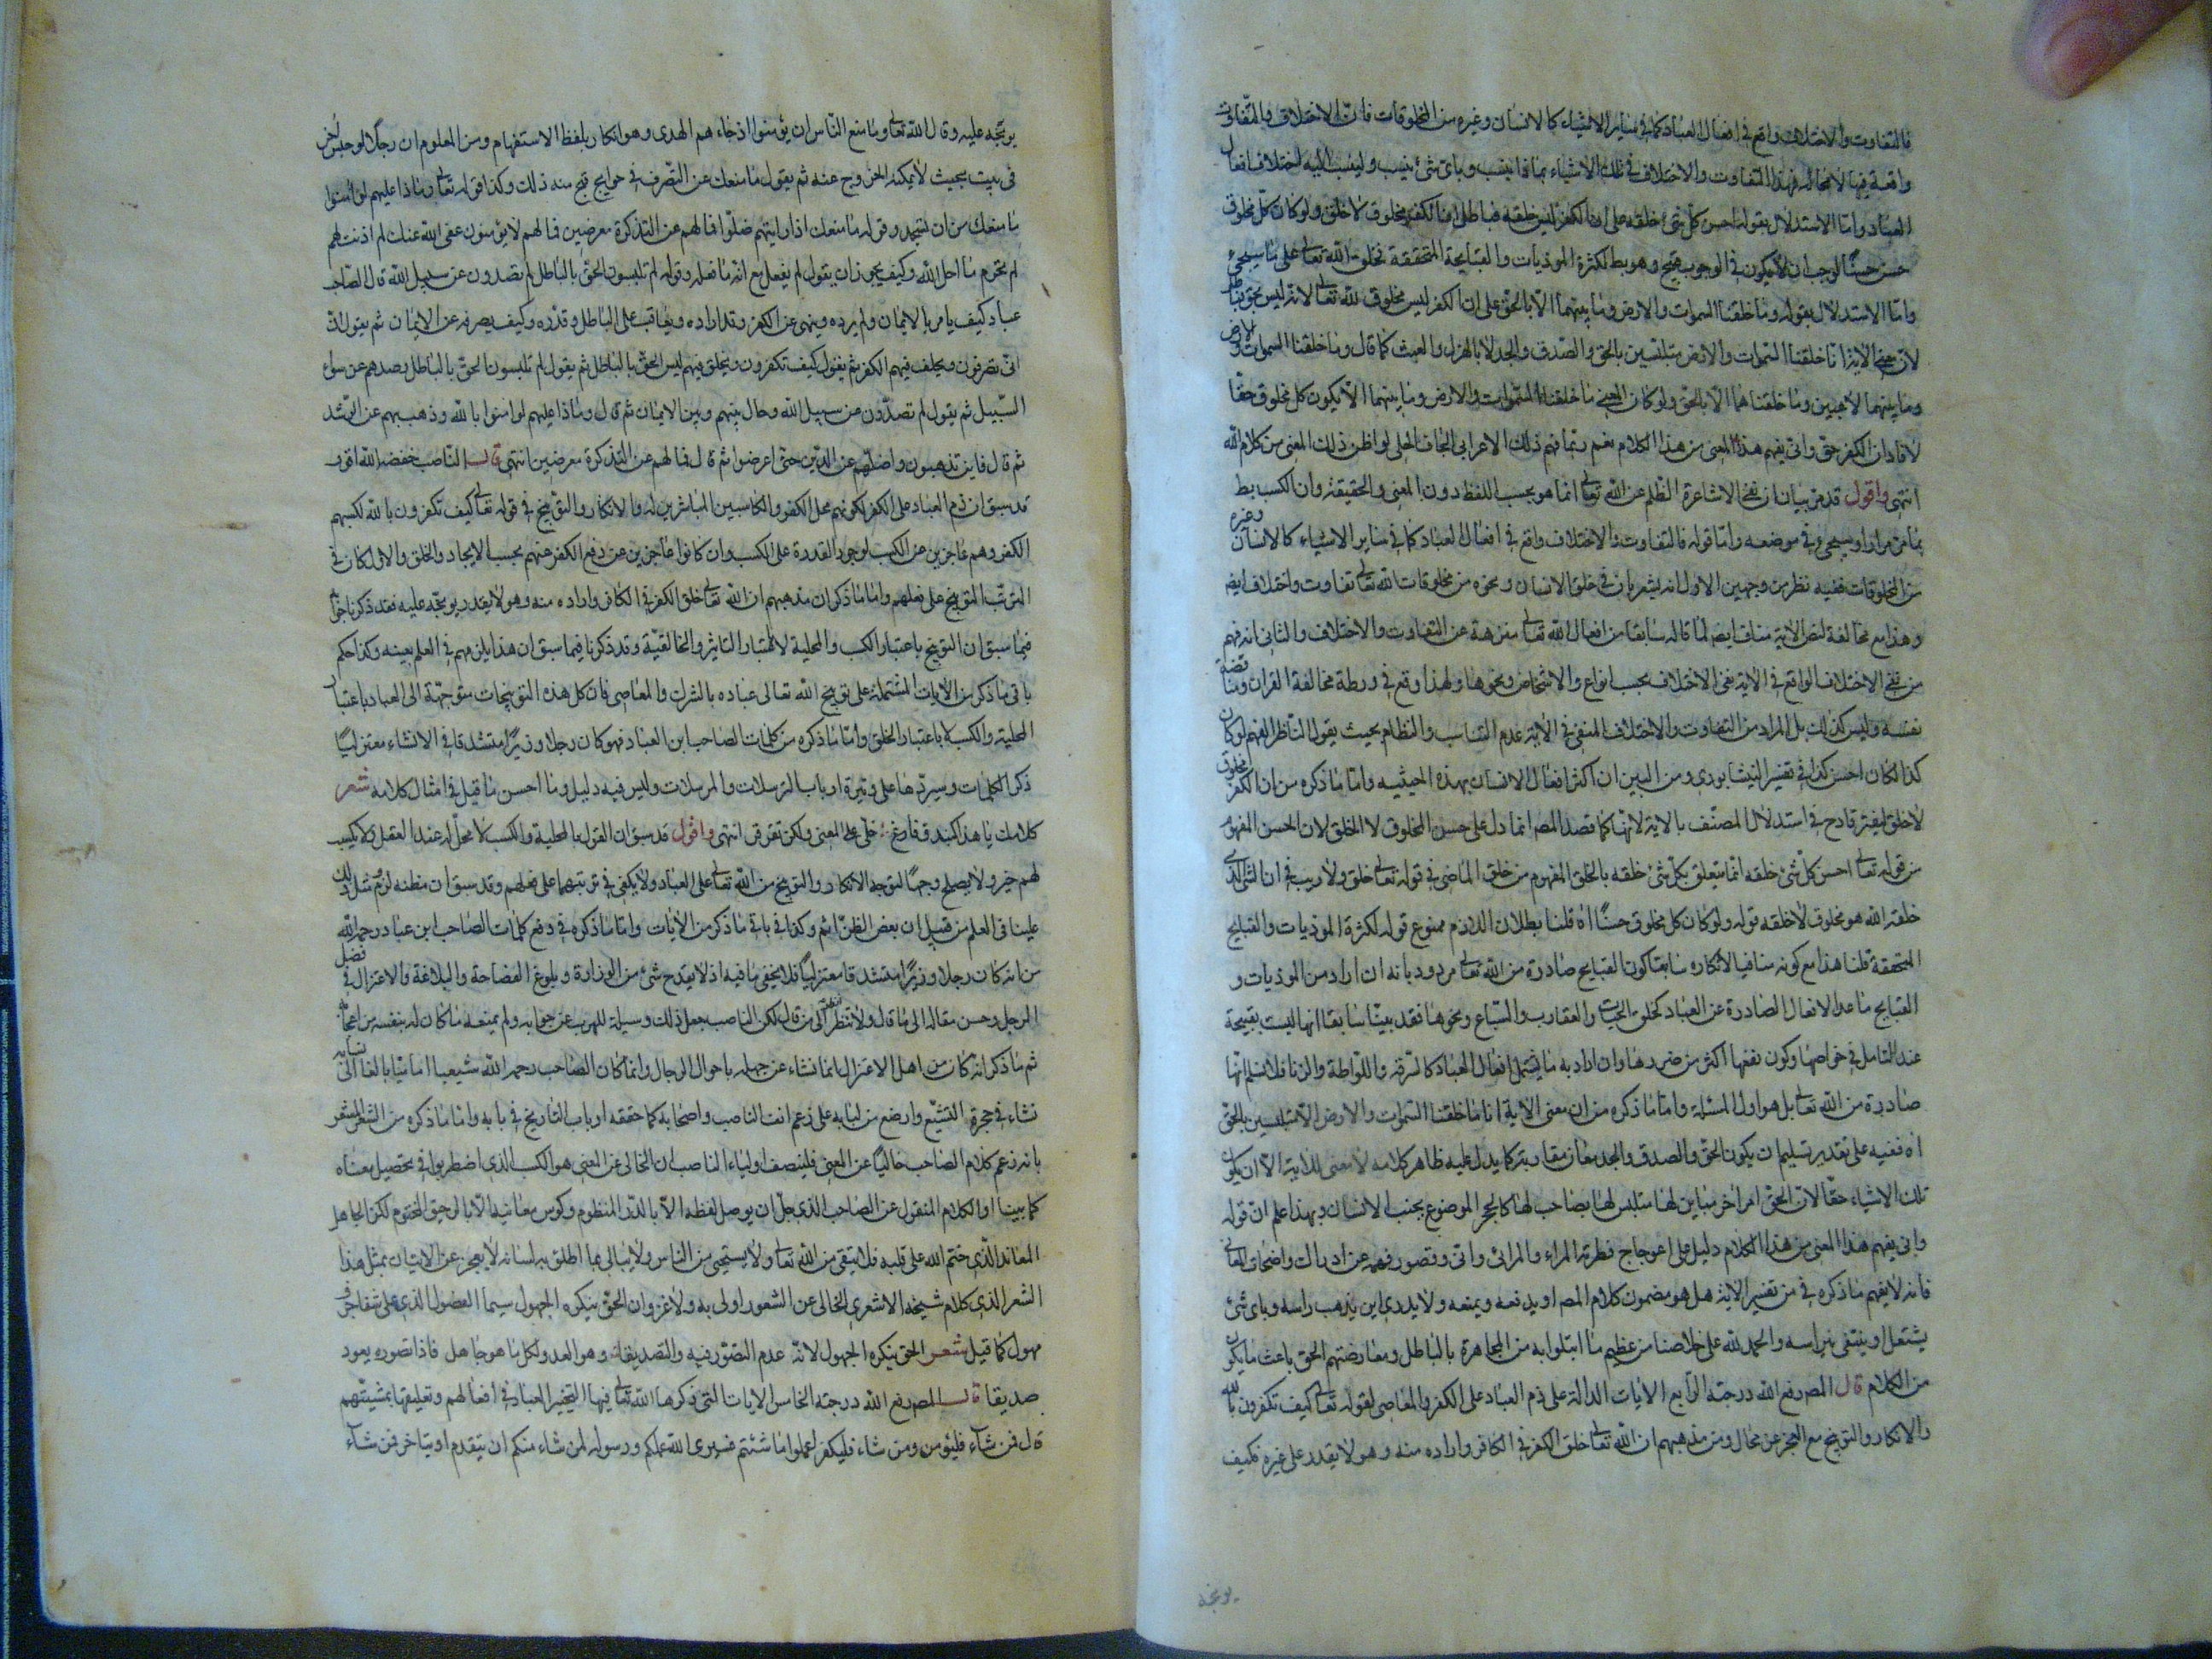 فالتفاوت والاختلاف واقع في افعال العباد كما في سائر الاشياء كالانسان وغيره من المخلوقات فان الاختلاف والتفاوت
واقعة فيها لا محالة فهذا التفاوت والاختلاف في تلك الاشياء بماذا ينسب وبأي شئ ينسب ولينسب اليه اختلاف افعال
العباد واما الاستدلال بقوله احسن كل شئ خلقه على ان الكفر ليس خلقه فباطل لان الكفر مخلوق لا خلق ولو كان كل مخلوق
حسن حسنًا لوجب ان لا يكون في الوجود قبيح وهو بط لكثرة الموذيات والقبايح المتحققة بخلق الله تعالى على ما سيجئ
واما الاستدلال بقوله وما خلقنا السموات والارض وما بينهما الا بالحق على ان الكفر ليس مخلوق لله تعالى لانه ليس بحق بط
لان معنى الاية انا خلقنا السموات والارض متلبسين بالحق والصدق والجد لا بالهزل والعبث كما قال وما خلقنا السموات والارض
وما بينهما لاعبين وما خلقناهما الا بالحق ولو كان المعنى ما خلقنا السموات والارض وما بينهما الا يكون كل مخلوق حقًا
لافاد ان الكفر حق وانى يفهم هذا المعنى من هذا الكلام نعم ربما فهم ذلك الاعرابي الجاف الحلي لو اظن ذلك المعنى من كلام الله
انتهى واقول قد مر بيان ان نفي الاشاعرة الظلم عن الله تعالى انما هو بحسب اللفظ دون المعنى والحقيقة وان الكسب بط
بما مر مرارا وسيجئ في موضعه واما قوله فالتفاوت والاختلاف واقع في افعال العباد كما في سائر الاشياء كالانسان وغيره
من المخلوقات ففيه نظر من وجهين الاول انه يشعر بان في خلق الانسان ونحوه من مخلوقات الله تعالى تفاوت واختلاف ايض
وهذا مع مخالفة لنص الاية مناف ايضا لما قاله سابقا من افعال الله تعالى منزهة عن التفاوت والاختلاف والثاني انه فهم
من نفي الاختلاف الواقع في الاية نفي الاختلاف بحسب انواع والاشخاص ونحوها ولهذا وقع في ورطة مخالفة القران ومناقضة
نفسه وليس كذلك بل المراد من التفاوت والاختلاف المنفي في الاية عدم التناسب والنظام بحيث يقول الناظر الفهم لو كان
كذا لكان احسن كذا في تفسير النيشابوري ومن البين ان اكثر افعال الانسان بهذه الحيثيه واما ما ذكره من ان الكفر مخلوق
لا خلق فغير قادح في استدلال المصنف بالاية لانها كما قصد المصم انما دل على حسن المخلوق لا الخلق لان الحسن المفهوم
من قوله تعالى احسن كل شئ خلقه انما يتعلق بكل شئ خلقه بالخلق المفهوم من خلق الماضي في قوله تعالى خلق ولا ريب في ان الشئ الذي
خلقه الله هو مخلوق لا خلقه قوله ولو كان كل مخلوق حسنًا اه قلنا بطلان اللازم ممنوع قوله لكثرة الموذيات والقبايح
المتحققة قلنا هذا مع كونه منافيا لانكاره سابقا كون القبايح صادرة من الله تعالى مردود بانه ان اراد من الموذيات و
القبايح ما عدا الافعال الصادرة عن العباد كخلق الحيات والعقارب والسباع ونحوها فقد بينا سابقا انها ليست بقبيحة
عند التامل في خواصها وكون نفعها اكثر من ضررها وان اراد به ما يشتمل افعال العباد كالسرقة واللواطة والزنا فلا نسلم انها
صادرة من الله تعالى بل هو اول المسئلة واما ما ذكره من ان معنى الاية انا ما خلقنا السموات والارض الا متلبسين بالحق
اه ففيه على تقدير تسليم ان يكون الحق والصدق والجد معان متقاربة كما يدل عليه ظاهر كلامه لا معنى للاية الا ان يكون
تلك الاشياء حقًا لان الحق امرا خر مباين لها متلبس لها يصاحب لها كالحجر الموضوع بجنب الانسان وبهذا علم ان قوله
وانى يفهم هذا المعنى من هذا الكلام دليل على اعوجاج فطرته المراء والمرائى وقصور فهمه عن ادراك واضحات المعاني
فانه لا يفهم ما ذكره في من تفسير الاية هل هو مضمون كلام المصم او يدفعه ويمنعه ولا يدري اين يذهب راسه وباى شئ
يشتغل والحمد لله على خلاصنا من عظيم ما ابتلوا به من المجاهرة بالباطل ومعارضتهم الحق باعث ما يكون
من الكلام قال المصم رفع الله درجته الرابع الايات الدالة على ذم العباد على الكفر والمعاصي كقوله تعالى كيف تكفرون بالله
والانكار والتوبيخ مع العجز عنه محال ومن مذهبهم ان الله تعالى خلق الكفر في الكافر واراده منه وهو لا يقدر على غيره فكيف
يوبخه
يوبخه عليه وقال الله تعالى وما منع الناس ان يؤمنوا اذ جاءهم الهدى وهو انكار بلفظ الاستفهام ومن المعلوم ان رجلا لو حبس اخر
في بيت بحيث لا يمكنه الخروج عنه ثم يقول ما منعك عن التصرف في حوايجي قبح منه ذلك وكذا قوله تعالى وماذا عليهم لو امنوا
ما منعك من ان تسجد وقوله ما منعك اذ رايتهم ضلوا فما لهم عن التذكرة معرضين فما لهم لا يؤمنون عفى الله عنك لم اذنت لهم
لم تحرم ما احل الله وكيف يجوز ان يقول لم يفعل مع انه ما فعله وقوله لم تلبسون الحق بالباطل لم تصدون عن سبيل الله قال الصاحب
عباد كيف يامر بالايمان ولم يرده وينهى عن الكفر وقد اراده ويعاقب على الباطل وقدره وكيف يصرفه عن الايمان ثم يقول
انى تصرفون ويخلق فيهم الكفر ثم يقول كيف تكفرون ويخلق فيهم ليس الحق بالباطل ثم يقول لم تلبسون الحق بالباطل وصدهم عن سواء
السبيل ثم يقول لم تصدون عن سبيل الله وحال بينهم وبين الايمان ثم قال وماذا عليهم لو امنوا بالله وذهب بهم عن الرشد
ثم قال فاين تذهبون واضلهم عن الدين حتى اعرضوا ثم قال فما لهم عن التذكرة معرضين انتهى قال الناصب خفضه الله اقول
قد سبق ان ذم العباد على الكفر لكونهم محل الكفر والكاسبين المباشرين له والانكار والتوبيخ في قوله تعالى كيف تكفرون بالله لكسبهم
الكفر وهم غير عاجزين عن الكسب لوجود القدرة على الكسب وان كانوا عاجزين عن دفع الكفر عنهم بحسب الايجاد والخلق والاول كان في
الترتب التوبيخ على فعلهم واما ما ذكر ان مذهبهم ان الله تعالى خلق الكفر في الكافر واراده منه وهو لا يقدر يوبخه عليه فقد ذكرنا جوابه
فيما سبق ان التوبيخ باعتبار الكسب والمحلية لا باعتبار التاثير والخالقية وقد ذكرنا فيما سبق ان هذا يلزمهم في العلم بعينه وكذا حكم
باقى ما ذكر من الايات المشتملة على توبيخ الله تعالى عباده بالشرك والمعاصى فان كل هذه التوبيخات متوجهة الى العباد باعتبار
المحلية والكسب لا باعتبار الخلق واما ما ذكره من كلمات الصاحب ابن العباد فهو كان رجلا وزيرًا متشدقا في الانشاء معتزليًا
ذكر الكلمات وسيردها على وتيرة ارباب الترسلات والمرسلات وليس فيه دليل وما احسن ما قيل في امثال كلامه شعر
كلامك يا هذا كبندق فارغ خلي عن المعنى ولكن تفرقع انتهى واقول قد سبق ان القول بالمحلية والكسب لا محل له عند العقل ولا يكسب
لهم خير ولا يصلح وجهًا لتوجه الانكار والتوبيخ من الله تعالى على العباد ولا يكفى في ترتبهما على فعلهم وقد سبق ان مظنه لزوم مثل ذلك
علينا في العلم من قبيل ان بعض الظن اثم وكذا في باقى ما ذكر من الايات واما ما ذكره في دفع كلمات الصاحب ابن عباد رحمه الله
من انه كان رجلا وزيرًا متشدقا معتزليًا فلا يخفى ما فيه اذ لا يقدح شئ من الوزارة وبلوغ الفصاحة والبلاغة والاعتزال في فضل
الرجل وحسن مقاله الى ما قال ولا تنظر الى من قال لكن الناصب جعل ذلك وسيلة للهرب عن جوابه ولم يمنعه ما كان له بنفسه من اعجابه
ثم ما ذكر انه كان من اهل الاعتزال انما نشاء عن جهله باحوال الرجال وانما كان الصاحب رحمه الله شيعيا اماميًا بالغا
نشاء في حجرة التشيع وارضع من لبانه على زعم انف الناصب واصحابه كما حققه ارباب التاريخ في بابه واما ما ذكره من الشعر المشعر
بانه زعم كلام الصاحب خاليًا عن المعنى فلينصف اولياء الناصب ان الخالى عن المعنى هو الكسب الذي اضطربوا في تحصيل معناه
كما بينا او الكلام المنقول عن الصاحب الذي جل ان يوصل لفظه الا بالدر المنظوم وكوس معانيها الا بالرحيق المختوم لكن الجاهل
المعاند الذي ختم الله على قلبه فلا يتقى من الله تعالى ولا يستحيى من الناس ولا يبالى بما اطلق به لسانه لا يعجز عن الاتيان بمثل هذا
الشعر الذي كلام شيخه الاشعري الخالى عن الشعور اولى به ولا غرو ان الحق ينكره الجهول سيما الفضول الذي على شفا جرف
مهول كما قيل شعر الحق ينكره الجهول لانه عدم التصور فيه والتصديقا وهو العدو لكل ما هو جاهل فاذا تصوره يعود
صديقا قال المصم رفع الله درجته الخامس الايات التى ذكرها الله تعالى فيها التخيير العباد في افعالهم وتعليقها بمشيتهم
قال فمن شآء فليؤمن ومن شاء فليكفر اعملوا ما شئتم فسيرى الله عملكم ورسوله لمن شاء منكم ان يتقدم او يتاخر فمن شآء